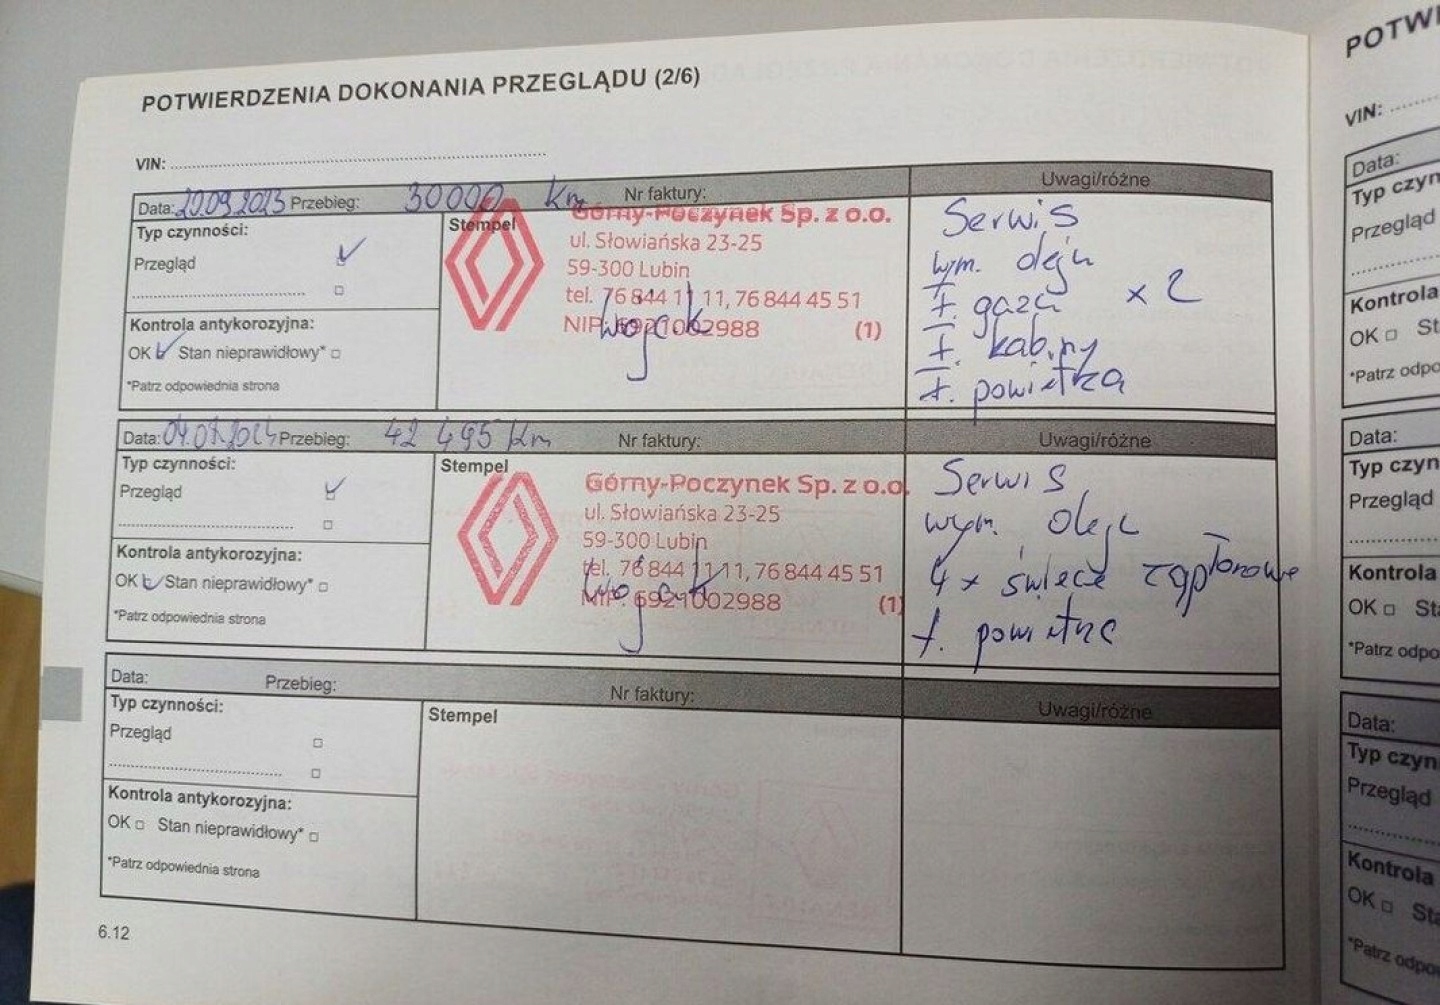 POTWIERDZENIA DOKONANIA PRZEGLĄDU (2/6)
VIN:
Data: 20.09.2023 Przebieg: 30000 km Nr faktury: Uwagi/różne
Typ czynności:
Przegląd
Kontrola antykorozyjna:
OK Stan nieprawidłowy*
*Patrz odpowiednia strona
Stempel
Górny-Poczynek Sp. z o.o.
ul. Słowiańska 23-25
59-300 Lubin
tel. 76 844 11 11, 76 844 45 51
NIP: 6921002988 (1)
Serwis
wym. oleju
f. gazu x 2
f. kabiny
f. powietrza
Data: Przebieg: 42 495 km Nr faktury: Uwagi/różne
Typ czynności:
Przegląd
Kontrola antykorozyjna:
OK Stan nieprawidłowy*
*Patrz odpowiednia strona
Stempel
Górny-Poczynek Sp. z o.o.
ul. Słowiańska 23-25
59-300 Lubin
tel. 76 844 11 11, 76 844 45 51
NIP: 6921002988 (1)
Serwis
wym. oleju
4 x świece zapłonowe
f. powietrza
Data: Przebieg: Nr faktury: Uwagi/różne
Typ czynności:
Przegląd
Kontrola antykorozyjna:
OK Stan nieprawidłowy*
*Patrz odpowiednia strona
Stempel
6.12
POTWI
VIN:
Data:
Typ czyn
Przegląd
Kontrola
OK St
*Patrz odpo
Data:
Typ czyn
Przegląd
Kontrola
OK Sta
*Patrz odpo
Data:
Typ czyn
Przegląd
Kontrola
OK Sta
*Patrz odpo